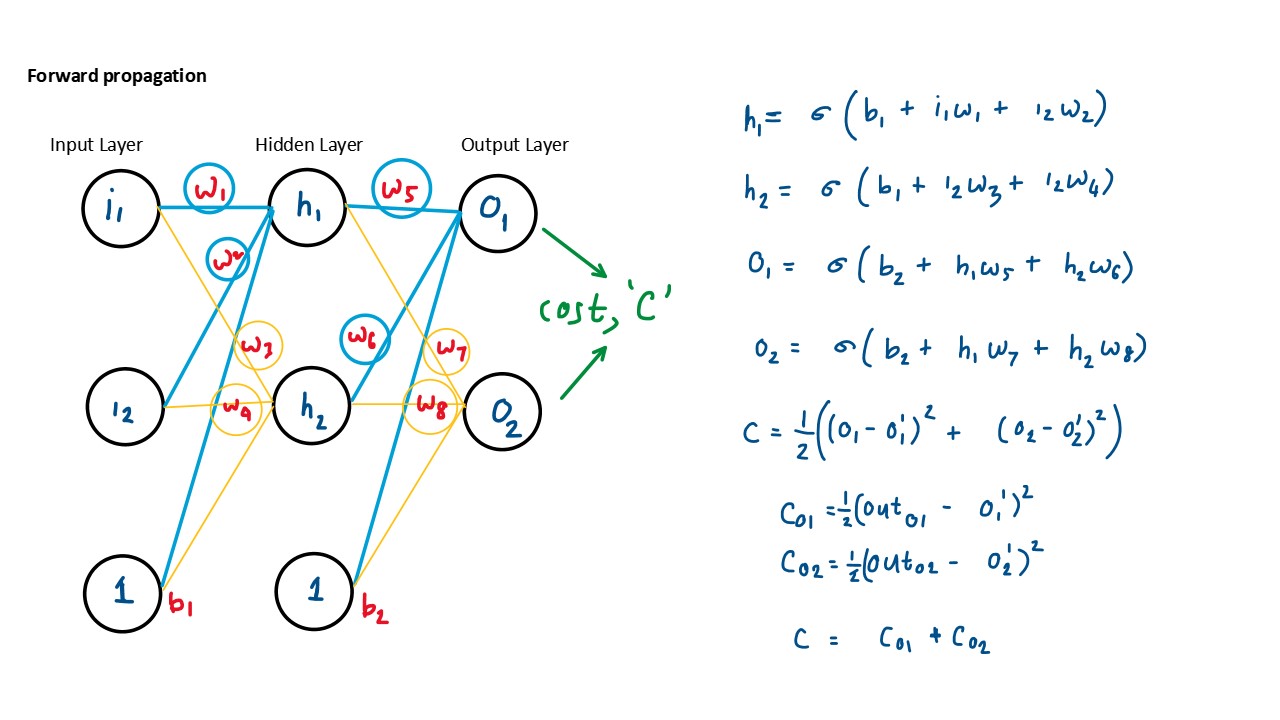 Forward propagation
Input Layer Hidden Layer Output Layer
i₁ w₁ h₁ w₅ O₁
w₂
cost, 'C'
w₃ w₆ w₇
ı₂ w₄ h₂ w₈ O₂
1 b₁ 1 b₂
h₁ = σ (b₁ + i₁w₁ + ı₂w₂)
h₂ = σ (b₁ + ı₂w₃ + ı₂w₄)
O₁ = σ (b₂ + h₁w₅ + h₂w₆)
O₂ = σ (b₂ + h₁w₇ + h₂w₈)
C = 1/2 ((O₁ - O₁')² + (O₂ - O₂')²)
C₀₁ = 1/2 (out₀₁ - O₁')²
C₀₂ = 1/2 (out₀₂ - O₂')²
C = C₀₁ + C₀₂